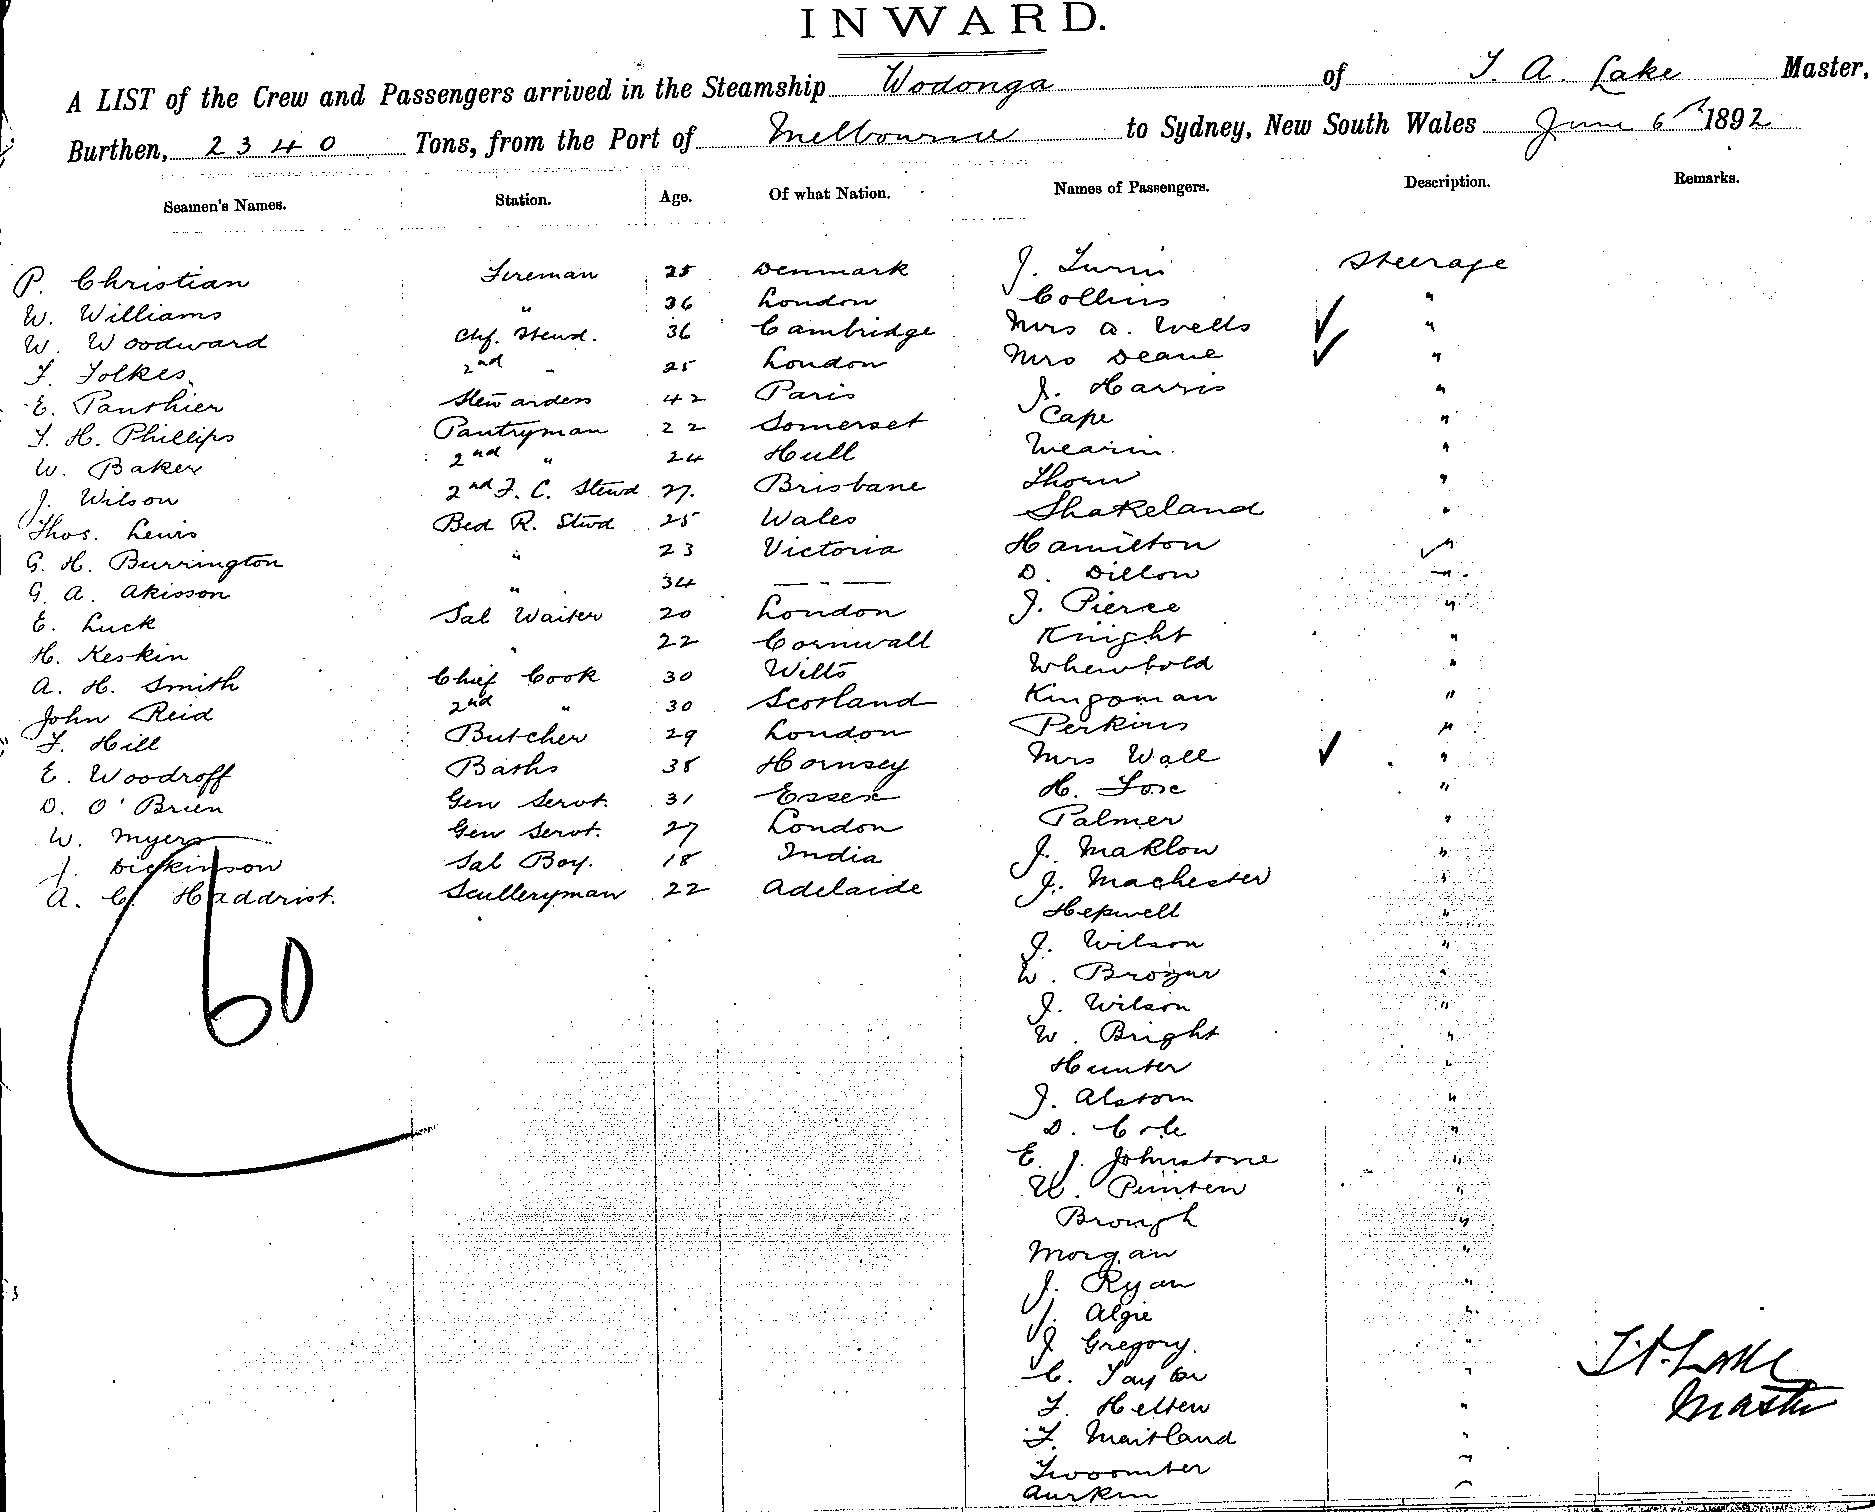 INWARD.
A LIST of the Crew and Passengers arrived in the Steamship Wodonga of T. A. Lake Master,
Burthen, 2340 Tons, from the Port of Melbourne to Sydney, New South Wales June 6th 1892
Seamen's Names. Station. Age. Of what Nation. Names of Passengers. Description. Remarks.
P. Christian Fireman 25 Denmark J. steerage
W. Williams " 36 London Collins "
W. Woodward Chf. Stewd. 36 Cambridge Mrs A. Wells "
F. Folkes 2nd " 25 London Mrs Deane "
E. Panthier Stewardess 42 Paris J. Harris "
F. H. Phillips Pantryman 22 Somerset Cape "
W. Baker 2nd " 24 Hull Wearin "
J. Wilson 2nd F. C. Stewd 27. Brisbane Thorn "
Thos. Lewis Bed R. Stwd 25 Wales Shakeland "
G. H. Burrington " 23 Victoria Hamilton "
G. A. Akisson " 34 — " — D. Dillon "
E. Luck Sal Waiter 20 London J. Pierce "
H. Keskin " 22 Cornwall Knight "
A. H. Smith Chief Cook 30 Wilts "
John Reid 2nd " 30 Scotland Kingsman "
F. Hill Butcher 29 London Perkins "
E. Woodroff Baths 38 Hornsey Mrs Wall "
D. O'Brien Gen Servt. 31 Essex H. "
W. Myers Gen Servt. 27 London Palmer "
J. Dickinson Sal Boy. 18 India J. Maklow "
A. C. Haddrist. Sculleryman 22 Adelaide J. Machester "
Hepwell "
J. Wilson "
60 W. "
J. Wilson "
W. Bright "
Hunter "
J. Alstom "
D. Cole "
E. J. Johnstone "
W. "
Brough "
Morgan "
J. Ryan "
J. Algie "
J. Gregory. "
C. Taylor "
F. Helten "
F. Maitland "
"
"
T. A. Lake
Master